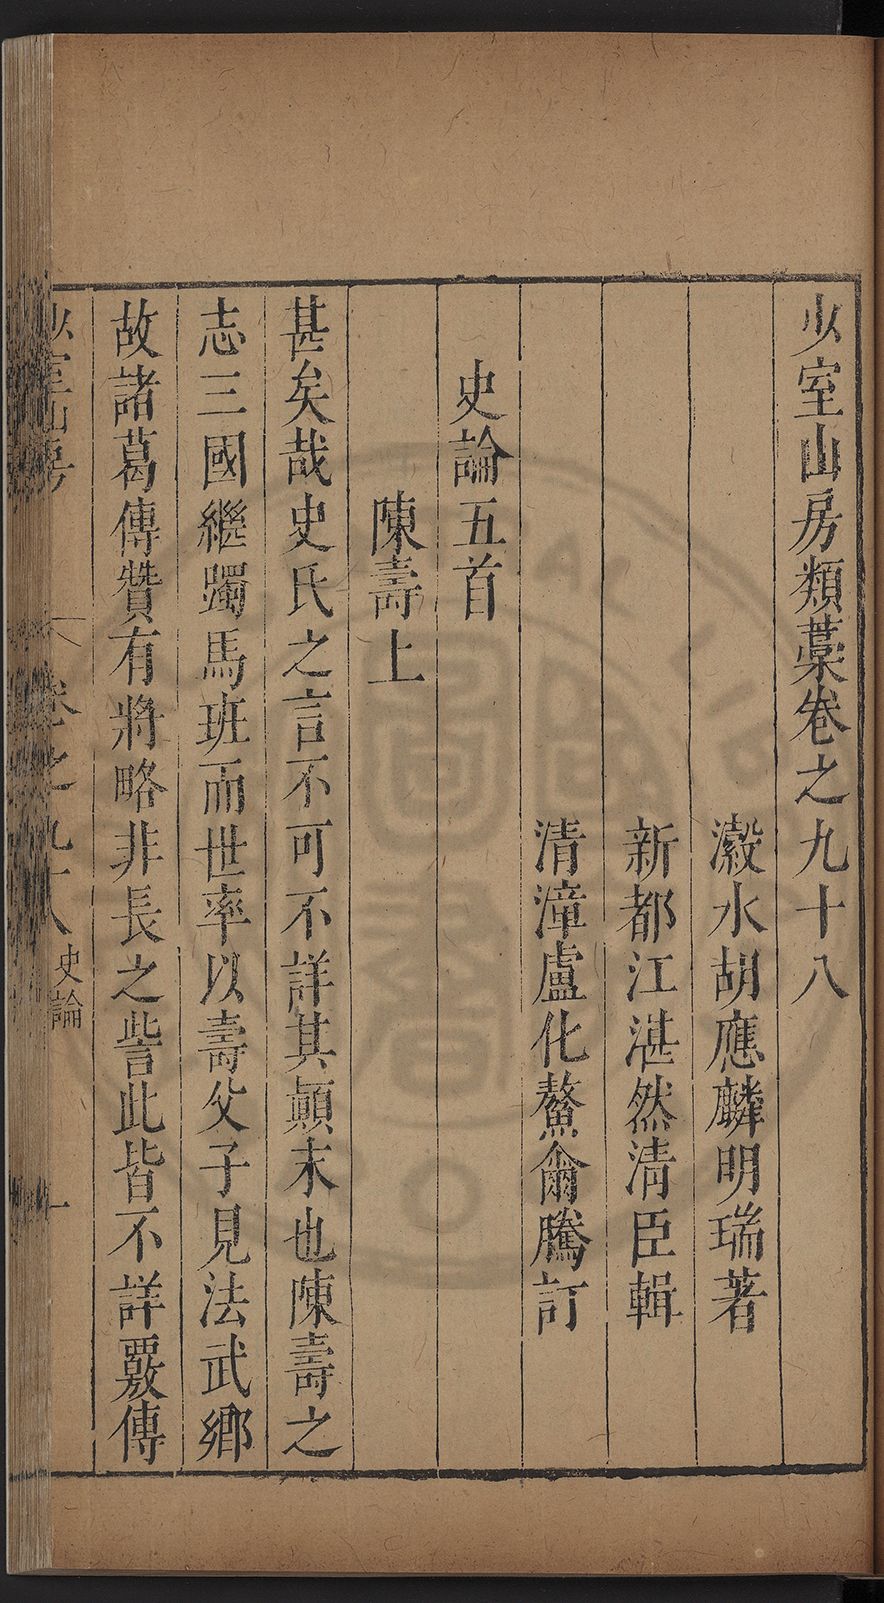 少室山房類藁卷之九十八
瀫水胡應麟明瑞著
新都江湛然清臣輯
清漳盧化鰲爾騰訂
史論五首
陳壽上
甚矣哉史氏之言不可不詳其顛末也陳壽之
志三國繼躅馬班而世率以壽父子見法武鄉
故諸葛傳贊有將略非長之訾此皆不詳覈傳
少室山房
卷之九十八
史論
一